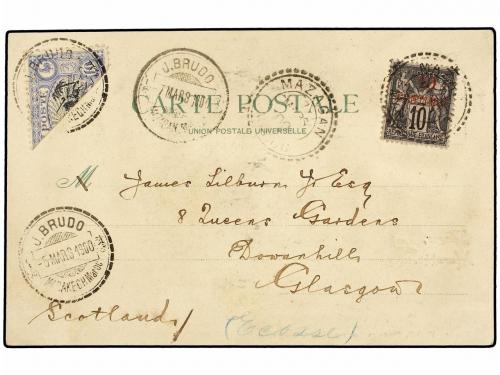 J. BRUDO
POSTE
J. BRUDO
MARS
MAZAGAN
10
CARTE POSTALE
UNION POSTALE UNIVERSELLE
M James Lilburn Jr Esq
8 Queens Gardens
Dowanhill
Glasgow
J. BRUDO
5 MARS 1900
Scotland/
(Ecosse)